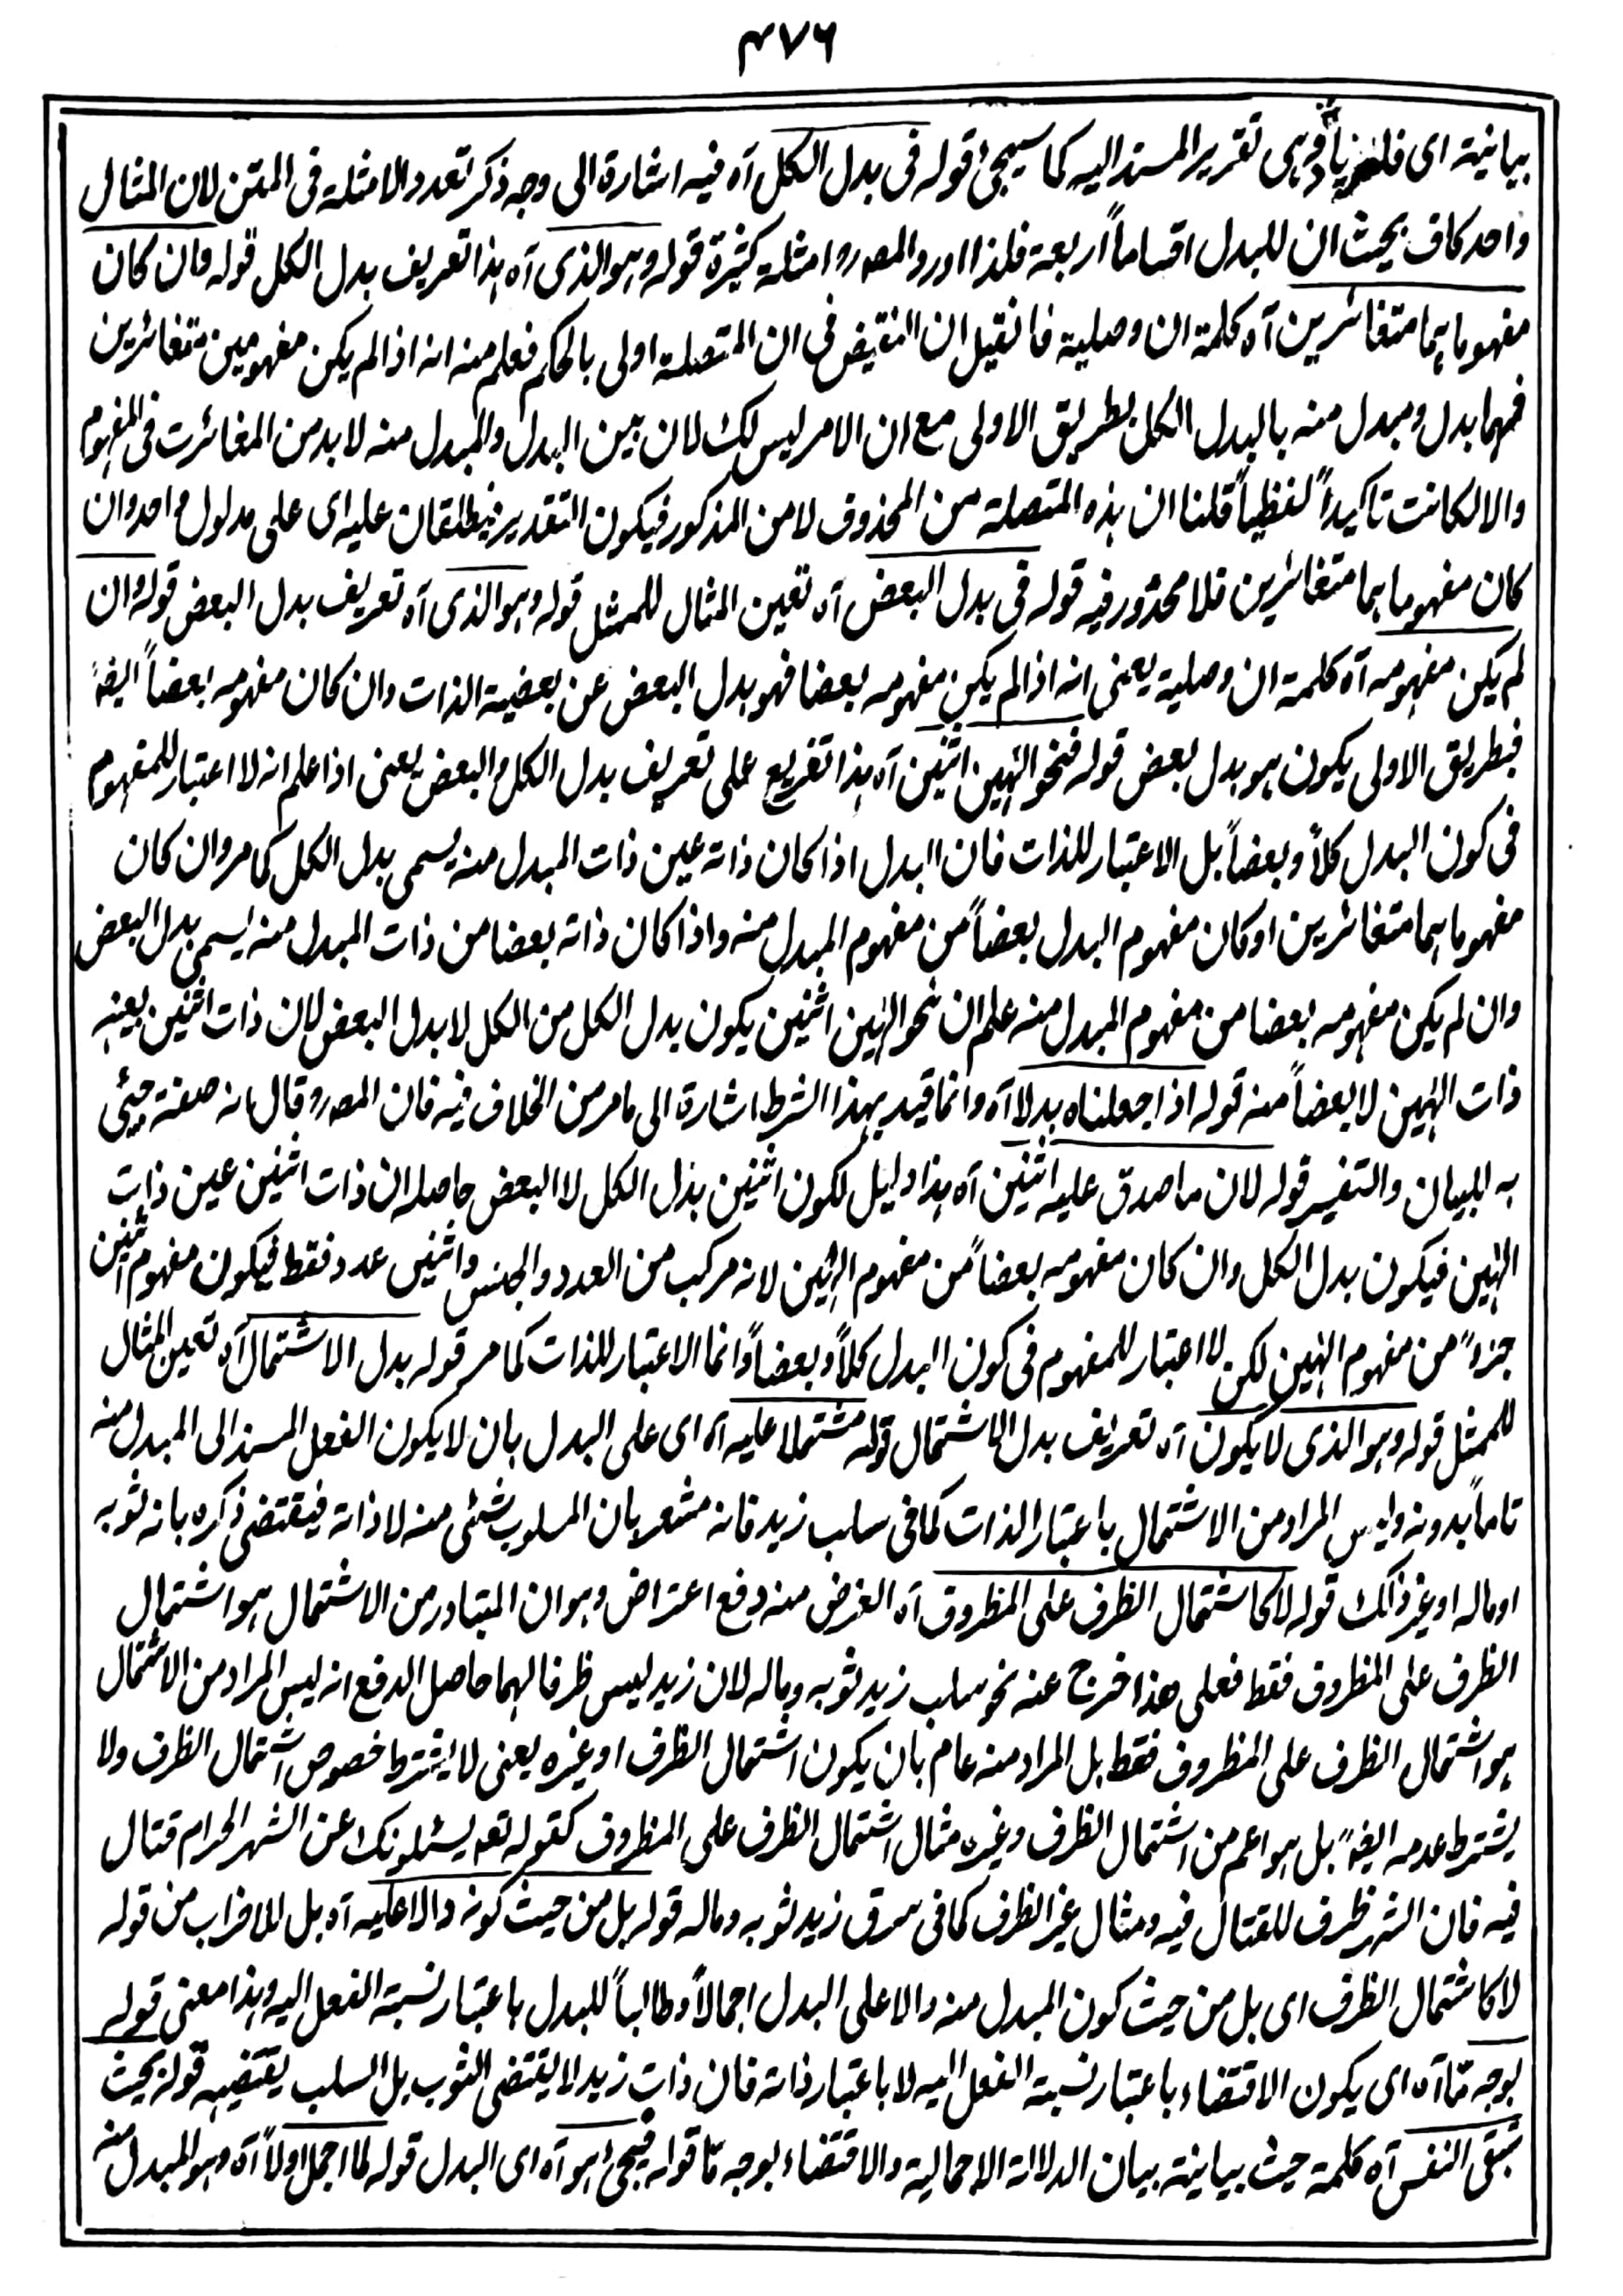 ٤٧٦
بيانية اى فلزيادة هى تقرير المسند اليه كما سيجئ قوله فى بدل الكل آه فيه اشارة الى وجه ذكر تعدد الامثلة فى المتن لان المثال
واحد كاف بحيث ان للبدل اقساماً اربعة فلذا اورد المصـ رو امثلة كثيرة قوله وهو الذى آه هذا تعريف بدل الكل قوله فان كان
مفهوماهما متغائرين آه كلمة ان وصلية فانقيل ان النقيض فى ان المتصلة اولى بالحكم فعلم منه انه اذا لم يكن مفهومين متغائرين
فهما بدل ومبدل منه بالبدل الكل بطريق الاولى مع ان الامر ليس كك لان بين البدل والمبدل منه لا بد من المغائرت فى المفهوم
والا لكانت تاكيداً لفظياً قلنا ان هذه المتصلة من المحذوف لا من المذكور فيكون التقدير فيطلقان عليه اى على مدلول واحد وان
كان مفهوماهما متغائرين فلا محذور فيه قوله فى بدل البعض آه تعين المثال للممثل قوله وهو الذى آه تعريف بدل البعض قوله وان
لم يكن مفهومه آه كلمة ان وصلية يعنى انه اذا لم يكن مفهومه بعضا فهو بدل البعض عن بعضية الذات وان كان مفهومه بعضاً ايضاً
فبطريق الاولى يكون هو بدل بعض قوله فنحو الٰهين اثنين آه هذا تفريع على تعريف بدل الكل والبعض يعنى اذا علم انه لا اعتبار للمفهوم
فى كون البدل كلاً وبعضاً بل الاعتبار للذات فان البدل اذا كان ذاته عين ذات المبدل منه يسمى بدل الكل كما مر وان كان
مفهوماهما متغائرين او كان مفهوم البدل بعضاً من مفهوم المبدل منه واذا كان ذاته بعضا من ذات المبدل منه يسمى بدل البعض
وان لم يكن مفهومه بعضا من مفهوم المبدل منه علم ان نحو الٰهين اثنين يكون بدل الكل من الكل لا بدل البعض لان ذات اثنين بعينه
ذات الٰهين لا بعضاً منه قوله اذا جعلناه بدلا آه وانما قيد بهذا الشرط اشارة الى ما مر من الخلاف فيه فان المصـ رو قال انه صفة جيئ
به للبيان والتفسير قوله لان ما صدق عليه اثنين آه هذا دليل لكون اثنين بدل الكل لا البعض حاصله ان ذات اثنين عين ذات
الٰهين فيكون بدل الكل وان كان مفهومه بعضاً من مفهوم الٰهين لانه مركب من العدد والجنس واثنين عدد فقط فيكون مفهوم اثنين
جزءً من مفهوم الٰهين لكن لا اعتبار للمفهوم فى كون البدل كلاً وبعضاً وانما الاعتبار للذات كما مر قوله بدل الاشتمال آه تعين المثال
للممثل قوله وهو الذى لا يكون آه تعريف بدل الاشتمال قوله مشتملا عليه آه اى على البدل بان لا يكون الفعل المسند الى المبدل منه
تاماً بدونه وليس المراد من الاشتمال باعتبار الذات كما فى سلب زيد فانه مشعر بان المسلوب شئى منه لا ذاته فيقتضى ذكره بانه ثوبه
او ماله او غير ذالك قوله لا كاشتمال الظرف على المظروف آه الغرض منه دفع اعتراض وهو ان المتبادر من الاشتمال هو اشتمال
الظرف على المظروف فقط فعلى هذا خرج عنه نحو سلب زيد ثوبه وماله لان زيد ليس ظرفا لهما حاصل الدفع انه ليس المراد من الاشتمال
هو اشتمال الظرف على المظروف فقط بل المراد منه عام بان يكون اشتمال الظرف او غيره يعنى لا يشترط خصوص اشتمال الظرف ولا
يشترط عدمه ايضاً بل هو اعم من اشتمال الظرف وغيره مثال اشتمال الظرف على المظروف كقوله تعـ يسئلونك عن الشهر الحرام قتال
فيه فان الشهر ظرف للقتال فيه ومثال غير الظرف كما فى سرق زيد ثوبه وماله قوله بل من حيث كونه دالا عليه آه بل للاضراب من قوله
لا كاشتمال الظرف اى بل من حيث كون المبدل منه دالا على البدل اجمالاً وطالباً للبدل باعتبار نسبة الفعل اليه وهذا معنى قوله
بوجه مّا آه اى يكون الاقتضاء باعتبار نسبة الفعل اليه لا باعتبار ذاته فان ذات زيد لا يقتضى الثوب بل السلب يقتضيه قوله بحيث
تبقى النفس آه كلمة حيث بيانية بيان الدلالة الاجمالية والاقتضاء بوجه مّا قوله فيجئ هو آه اى البدل قوله لما اجمل اولاً آه وهو المبدل منه